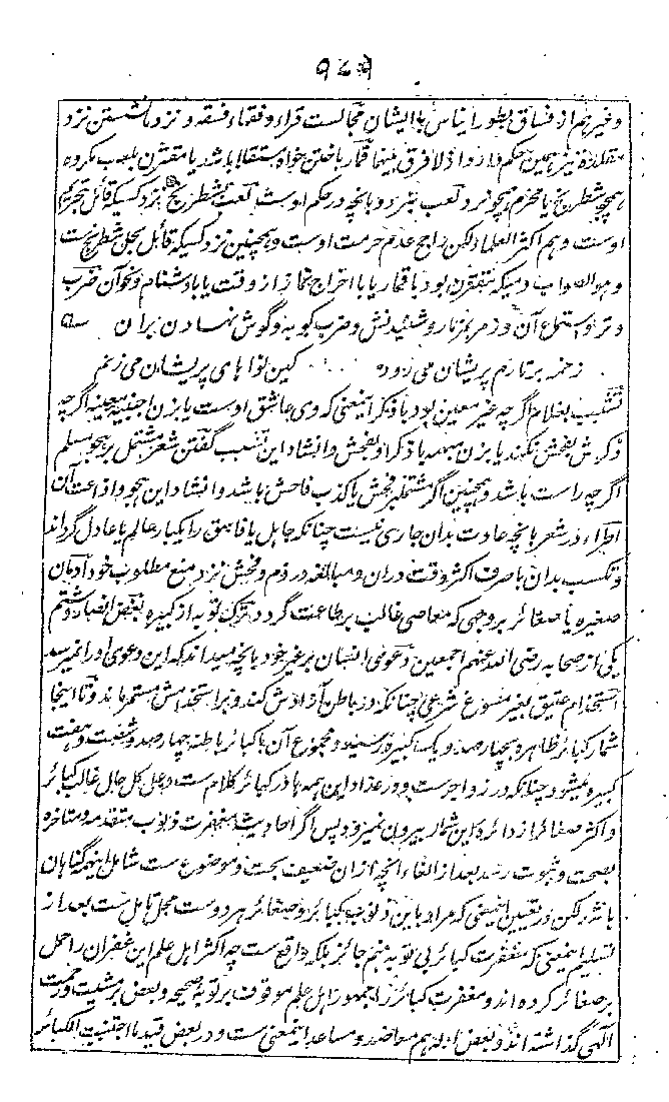 و غیرهم از فساق بطور ایناس باایشان مجالست قراء و فقهاء فسقه و نزد ما نشستن نزد
مقلده نیز همین حکم دارد اذ لا فرق بینهما قمار باختن خواه مستقلا باشد یا مقترن بلعب مکروه
همچو شطرنج یا محرم همچو نرد لعب بنرد و بانچه در حکم اوست لعب بشطرنج نزد کسیکه قائل بتحریم
اوست و هم اکثر العلماء لکن راجح عدم حرمت اوست و همچنین نزد کسیکه قائل بحل شطرنج ست
و هو الصواب دمیکه مقترن بود با قمار یا با اخراج نماز از وقت یا با دشنام و نحو آن ضرب
وتر و استماع آن و زمر بمزمار و شنیدنش و ضرب کوبه و گوش نهادن بران
زخمه بر تارم پریشان می رود کین نواهای پریشان می زنم
تشبیب بغلام اگرچه غیر معین بود با ذکر اینمعنی که وی عاشق اوست یا بزن اجنبیه معینه اگرچه
ذکرش بفحش نکند یا بزن مبهمه با ذکر او بفحش و انشاد این تشبیب گفتن شعر مشتمل بر هجو مسلم
اگرچه راست باشد و همچنین اگر مشتمل بفحش یا کذب فاحش باشد و انشاد این هجو و اذاعت آن
اطراء در شعر بانچه عادت بدان جاری نیست چنانکه جاهل یا فاسق را یکبار عالم یا عادل گرداند
و تکسب بدان با صرف اکثر وقت دران و مبالغه در ذم و فحش نزد منع مطلوب خود ادمان
صغیره یا صغائر بروجهی که معاصی غالب بر طاعت گردد ترک توبه از کبیره بغض انصار و شتم
یکی از صحابه رضی الله عنهم اجمعین دعوی انسان بر غیر خود بانچه میداند که این دعوی او را نمیرسد
استخدام عتیق بغیر مسوغ شرعی چنانکه در باطن آزادش کند و بر استخدامش مستمر باند و تا اینجا
شمار کبائر ظاهره بچهارصد و یک کبیره رسیده و مجموع آن با کبائر باطنه چهارصد و شصت و هفت
کبیره میشود چنانکه در زواجر ست و در عداد این همه ها در کبائر کلام ست و علی کل حال غالب کبائر
و اکثر صغائر از دائره این شمار بیرون نمیرود پس اگر احادیث مغفرت ذنوب متقدمه و متاخره
بصحت و ثبوت رسد بعد از الغاء انچه ازان ضعیف بحت و موضوع ست شامل اینهمه گناهان
باشد لکن در تعیین اینمعنی که مراد باین ذنوب کبائر و صغائر هر دو ست محل تامل ست بعد از
تسلیم اینمعنی که مغفرت کبائر بی توبه هم جائز بلکه واقع ست چه اکثر اهل علم این غفران را حمل
بر صغائر کرده اند و مغفرت کبائر نزد جمهور اهل علم موقوف بر توبه صحیحه و بعض بر مشیت و رحمت
الهی گذاشته اند و بعض ادله هم معاضد و مساعد اینمعنی ست و در بعض قید ما اجتنبت الکبائر